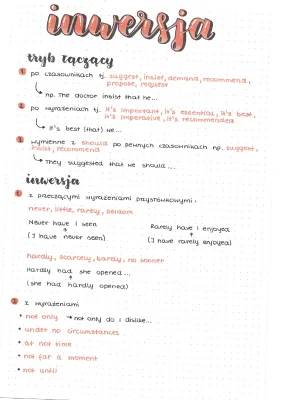 inwersja
tryb łączący
1 po czasownikach tj. suggest, insist, demand, recommend,
propose, request
np. The doctor insist that he...
2 po wyrażeniach tj. it's important, it's essential, it's best,
it's imperative, it's recommended
it's best (that) we...
3 wymienne z should po pewnych czasownikach np. suggest,
insist, recommend
They suggested that we should ...
inwersja
1 z przeczącymi wyrażeniami przysłówkowymi:
never, little, rarely, seldom
Never have I seen
(I have never seen)
Rarely have I enjoyed
(I have rarely enjoyed)
hardly, scarcely, barely, no sooner
Hardly had she opened...
(she had hardly opened)
2 z wyrażeniami
• not only → not only do I dislike...
• under no circumstances
• at not time
• not for a moment
• not until